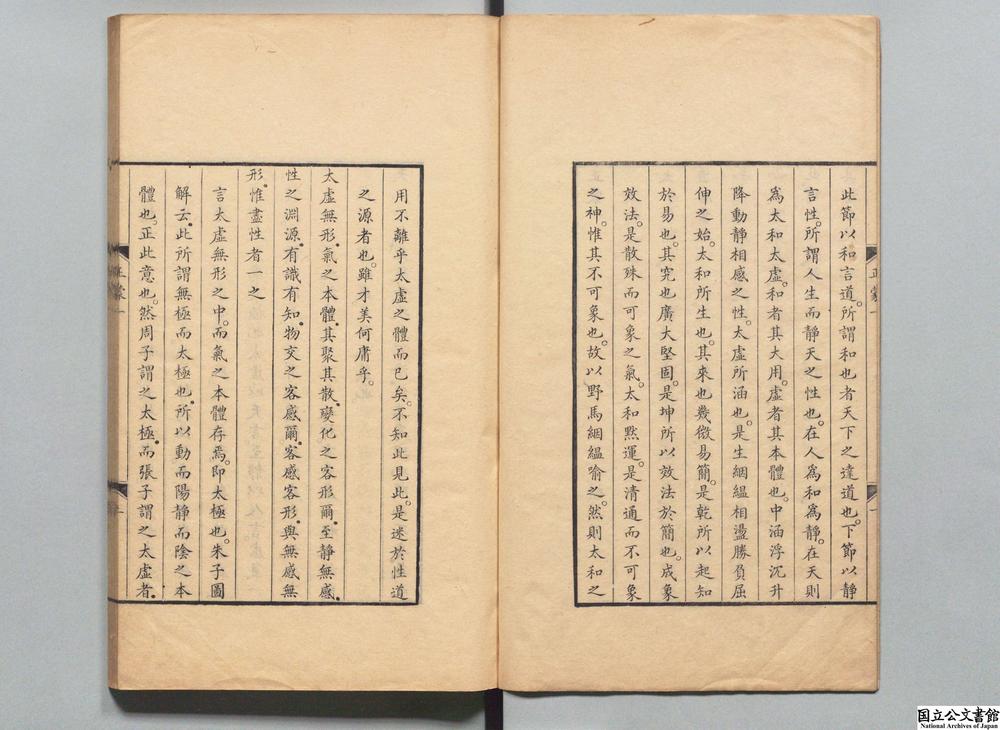 此節以和言道。所謂和也者天下之達道也。下節以靜
言性。所謂人生而靜天之性也。在人為和為靜。在天則
為太和太虛。和者其大用。虛者其本體也。中涵浮沉升
降動靜相感之性。太虛所涵也。是生絪縕相盪勝負屈
伸之始。太和所生也。其來也幾微易簡。是乾所以起知
於易也。其究也廣大堅固。是坤所以效法於簡也。成象
效法。是散殊而可象之氣。太和默運。是清通而不可象
之神。惟其不可象也。故以野馬絪縕喻之。然則太和之
正蒙一
一
用不離乎太虛之體而已矣。不知此見此。是迷於性道
之源者也。雖才美何庸乎。
太虛無形。氣之本體。其聚其散。變化之客形爾。至靜無感。
性之淵源。有識有知。物交之客感爾。客感客形。與無感無
形。惟盡性者一之
言太虛無形之中。而氣之本體存焉。即太極也。朱子圖
解云。此所謂無極而太極也。所以動而陽靜而陰之本
體也。正此意也。然周子謂之太極。而張子謂之太虛者。
正蒙一
一
国立公文書館
National Archives of Japan